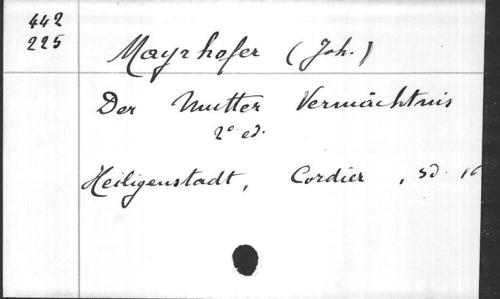 442
225
Mayrhofer (Joh.)
Der Mutter Vermächtnis
2° ed.
Heiligenstadt, Cordier, sd. 16